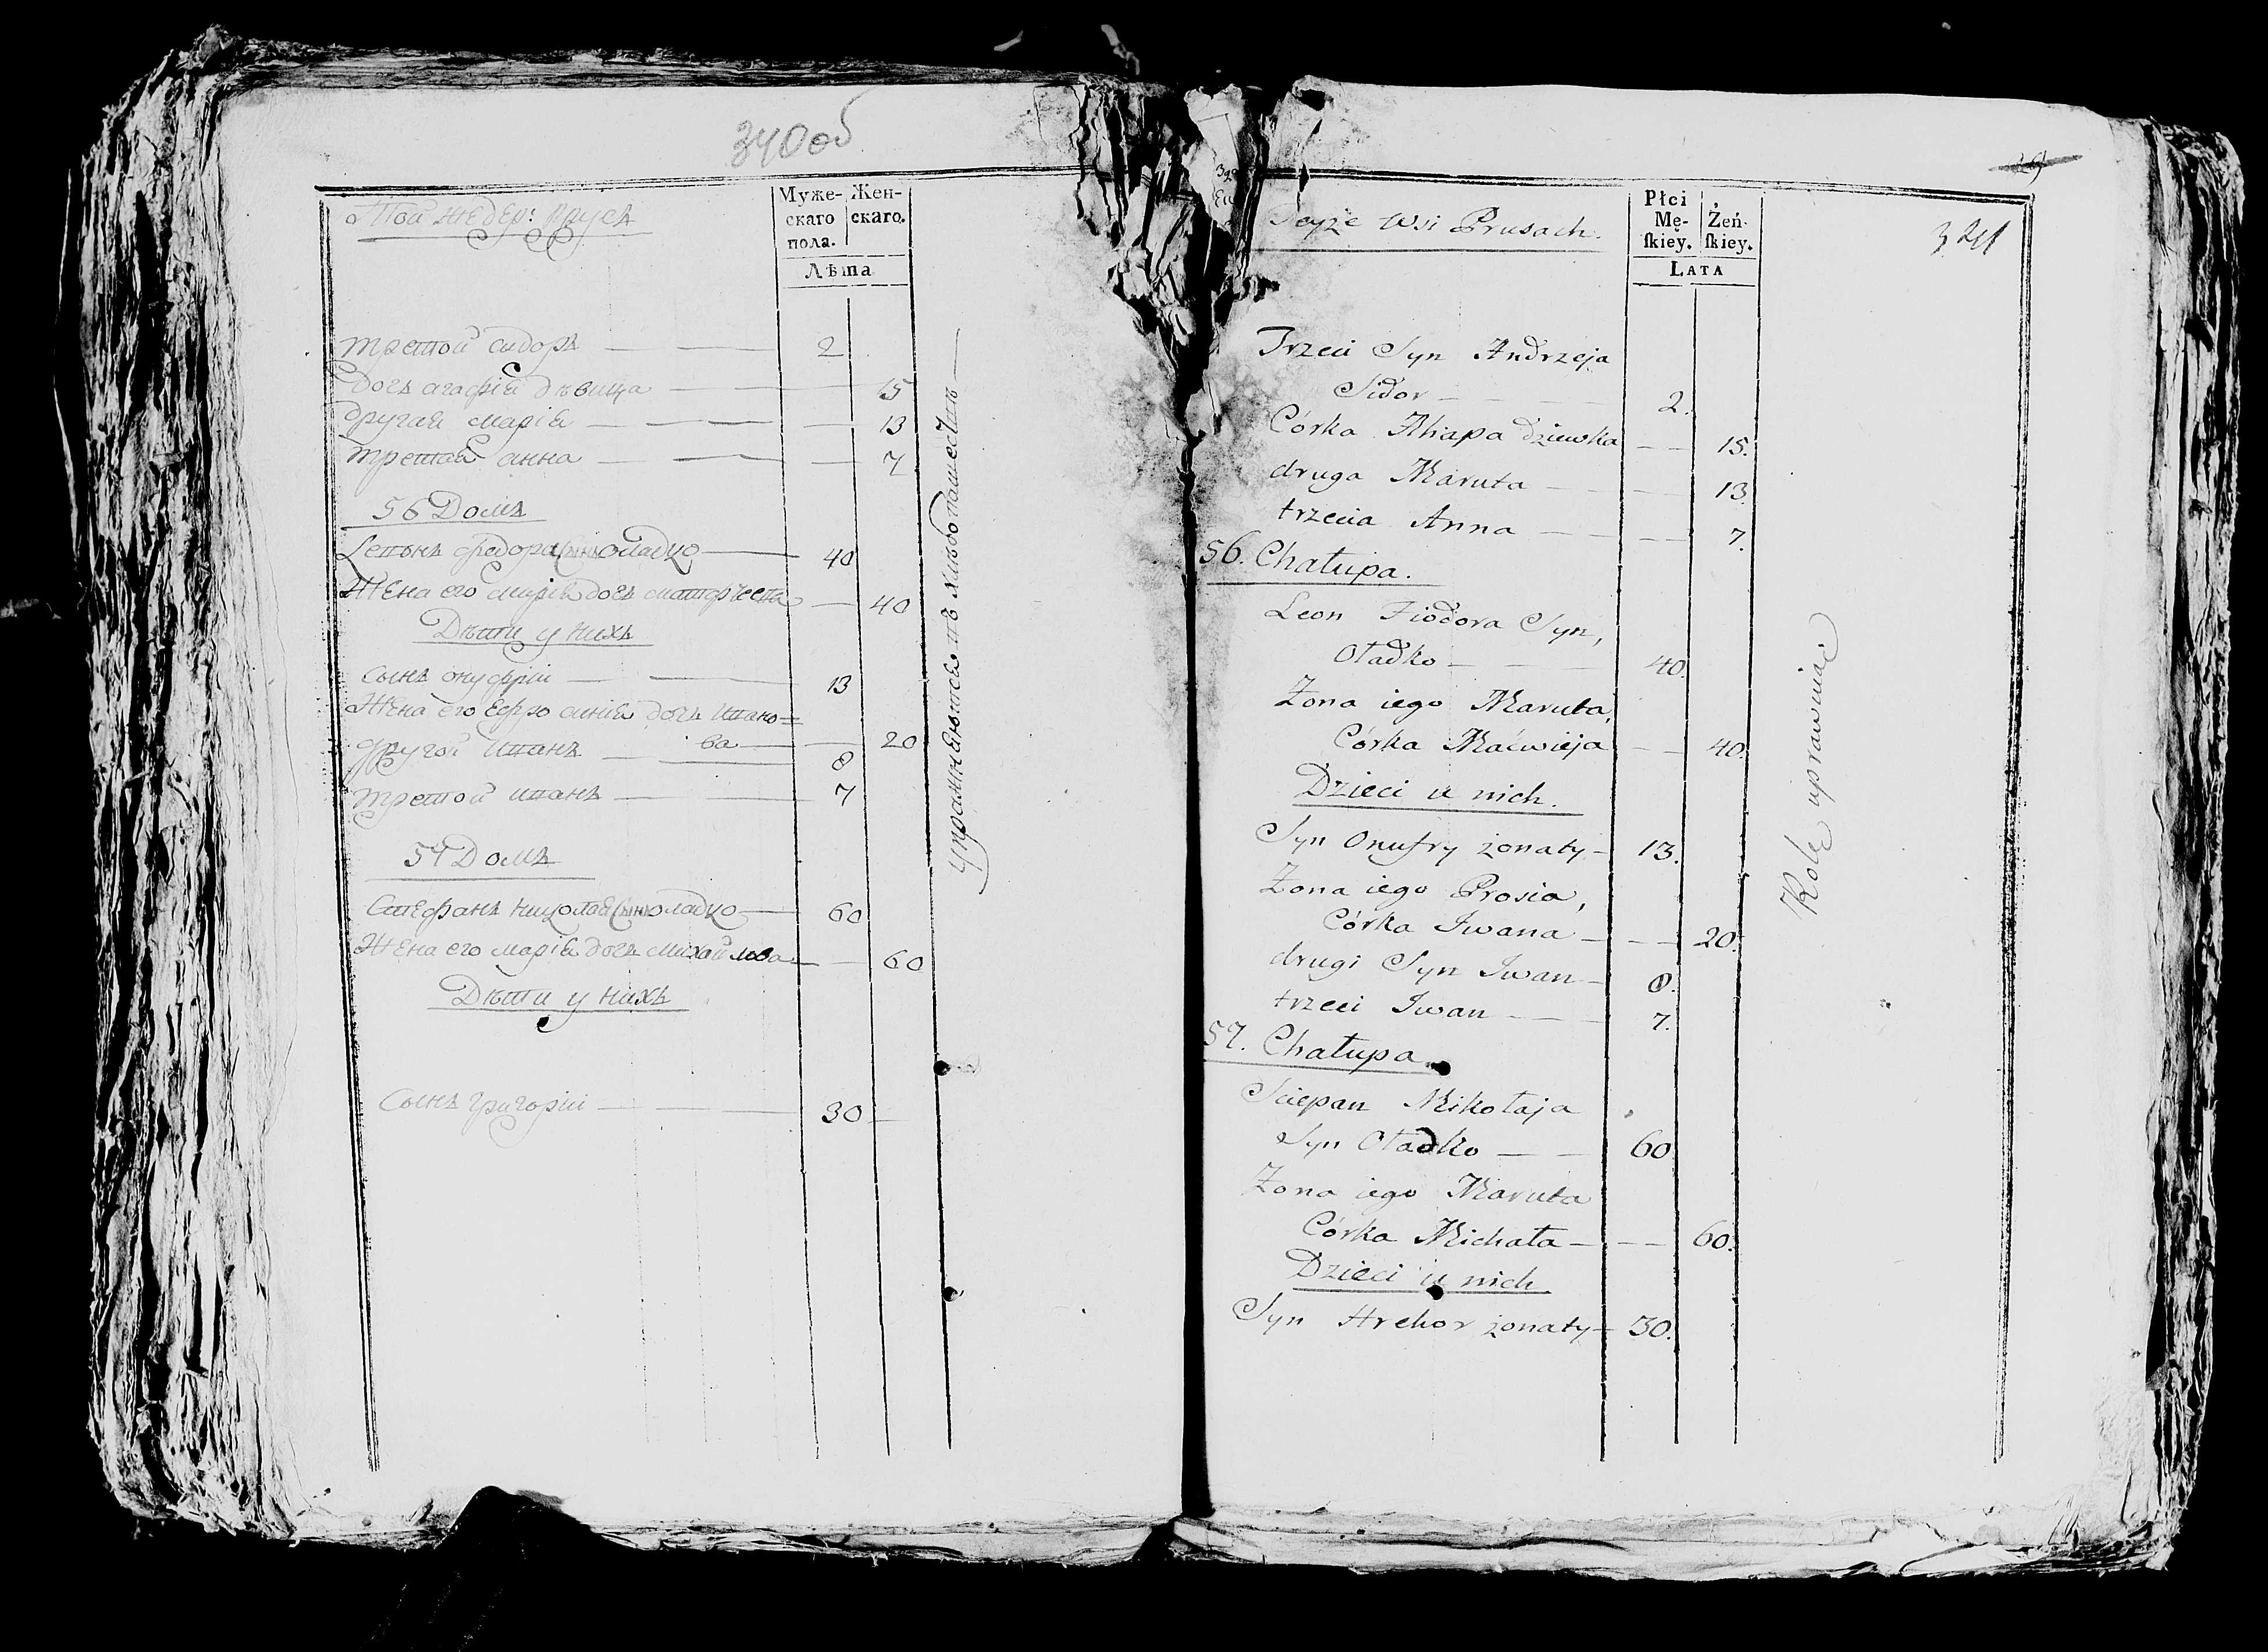 340об
Муже- Жен-
скаго скаго.
пола.
Лѣта
Той же дер: Прусъ
третой сидоръ 2
дочъ агафія дѣвица 15
другая марія 13
третая анна 7
56 Домъ
Леонъ федора сынъ оладко 40
Жена его марія дочъ 40
Дѣти у нихъ
сынъ онуфрій 13
Жена его дочъ ивано=
ва 20
другой иванъ 8
третой иванъ 7
57 Домъ
Стефанъ николая сынъ оладко 60
Жена его марія дочъ михайлова 60
Дѣти у нихъ
Сынъ григорій 30
Упражняются въ хлѣбопашествѣ
341
Teyże Wsi Prusach.
Płci
Mę- Żeń-
ſkiey. ſkiey.
LATA
Trzeci Syn Andrzeja
Sidor 2.
Córka Ahapa dziewka 15.
druga Maruta 13.
trzecia Anna 7.
56. Chałupa.
Leon Fiodora Syn,
Oładko 40.
Żona iego Maruta,
Córka Maćwieja 40.
Dzieci u nich.
Syn Onufry żonaty 13.
Żona iego Prosia,
Córka Iwana 20.
drugi Syn Iwan 8.
trzeci Iwan 7.
57. Chałupa.
Sciepan Mikołaja
Syn Oładko 60
Żona iego Maruta
Córka Michała 60.
Dzieci u nich
Syn Hrehor żonaty 30.
Rolę uprawniać